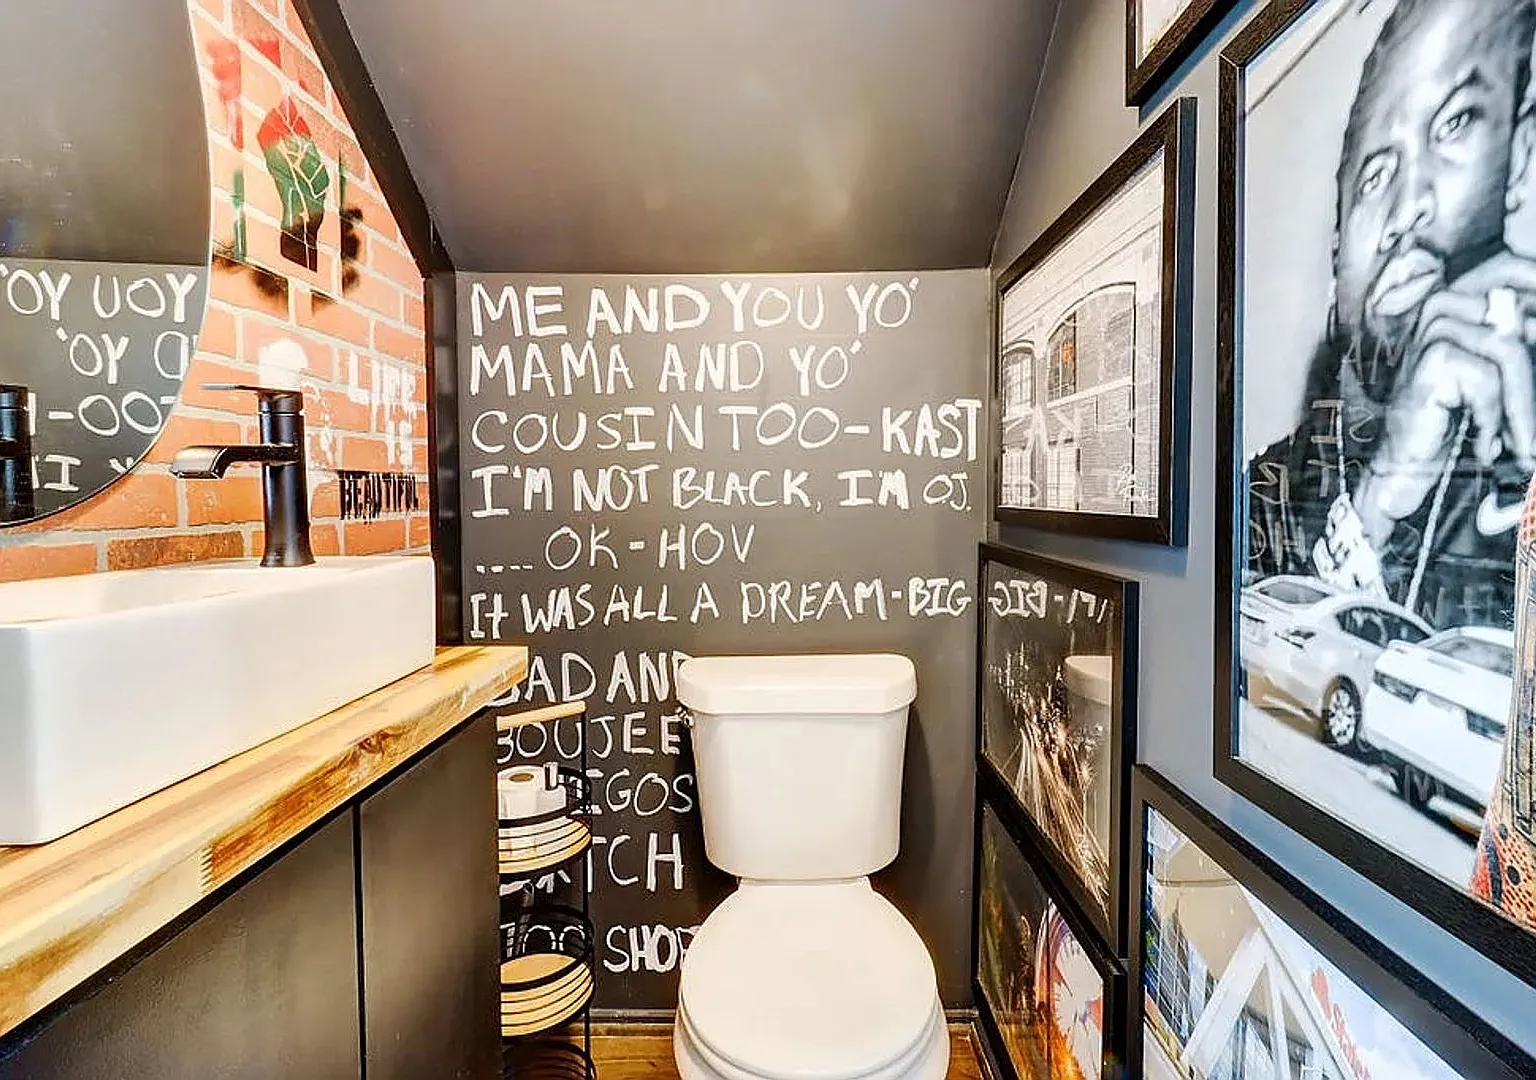 ME AND YOU YO'
MAMA AND YO'
COUSIN TOO-KAST
I'M NOT BLACK, I'M O.J.
.... OK-HOV
It WAS ALL A DREAM-BIG
BAD AND
BOUJEE
TOO SHOR
LIFE
IS
BEAUTIFUL